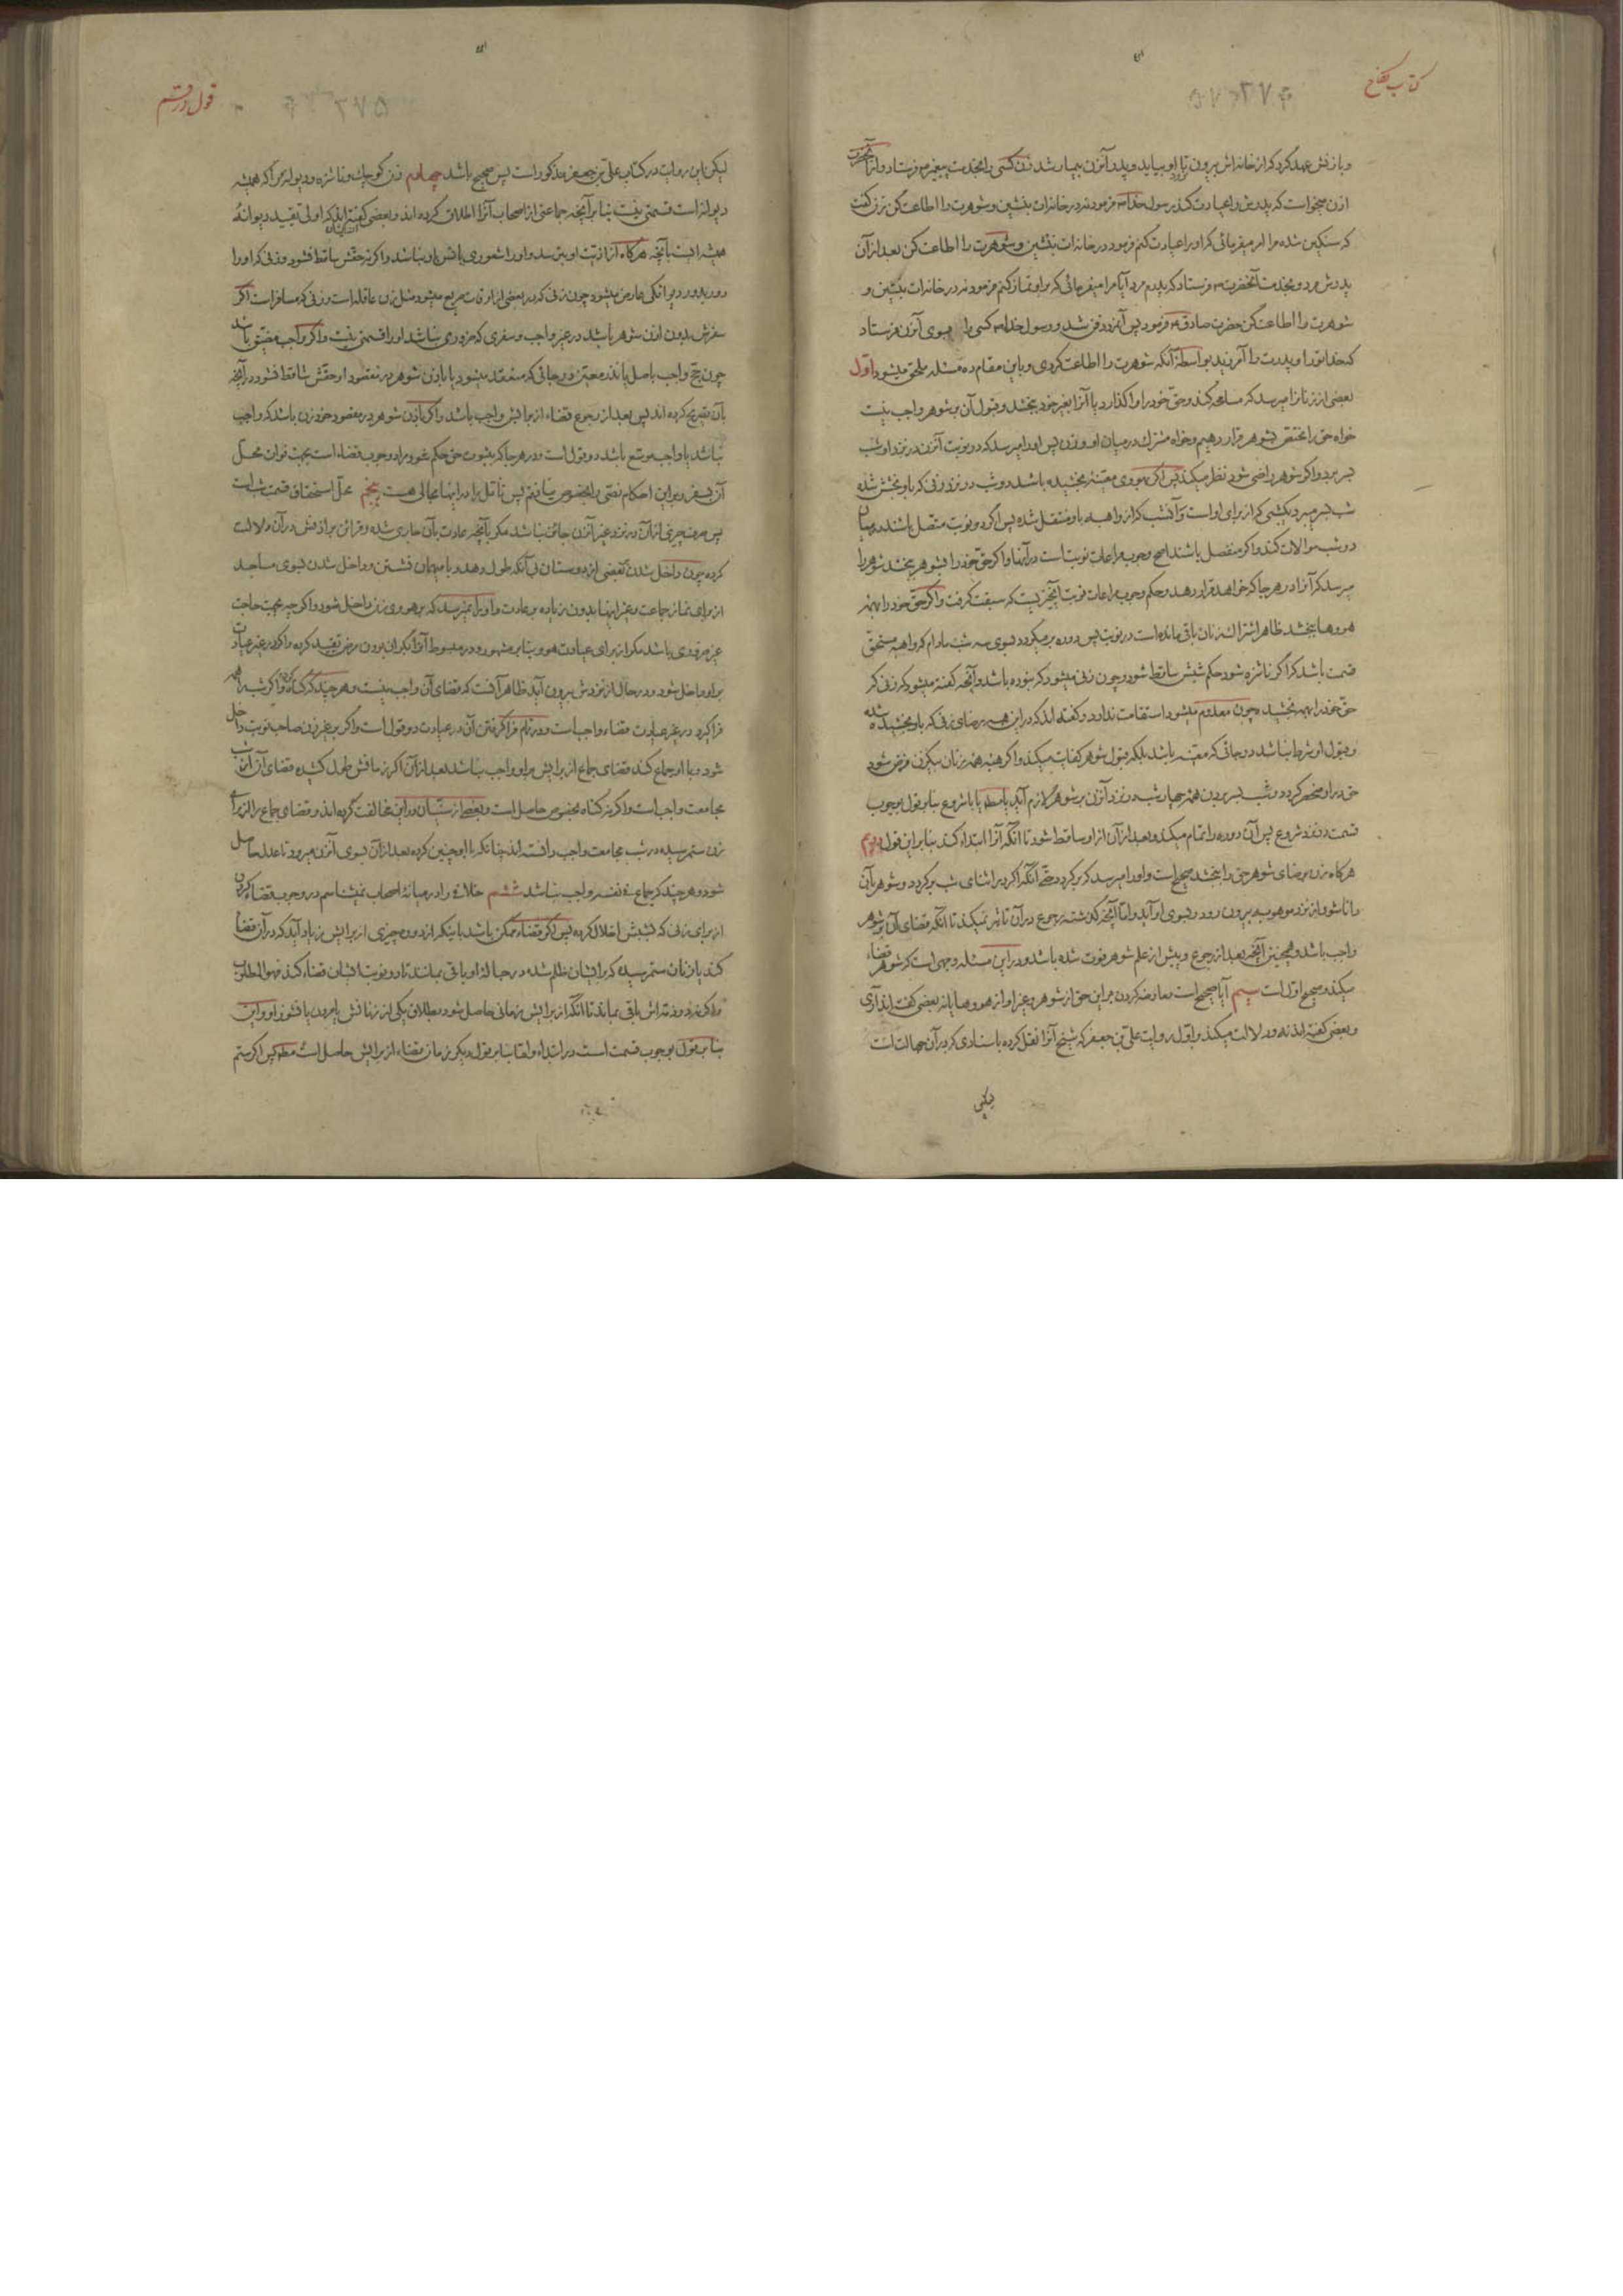 کتاب نکاح
۳۷۴
و با زنش عهد کرد که از خانه‌اش بیرون نیاید و پدر آنزن بیمار شد زن کسی را بخدمت پیغمبر فرستاد و از آنحضرت
اذن میخواست که پدرش را عیادت کند رسول خدا فرمود نه در خانه‌ات بنشین و شوهرت را اطاعت کن زن گفت
که سنگین شده مرا امر میفرمائی که او را عیادت کنم فرمود در خانه‌ات بنشین و شوهرت را اطاعت کن بعد از آن
پدرش مرد و بخدمت آنحضرت فرستاد که پدرم مرد آیا مرا میفرمائی که بر او نماز کنم فرمود نه در خانه‌ات بنشین و
شوهرت را اطاعت کن حضرت صادق فرمود پس آنمرد دفن شد و رسول خدا کسی را بسوی آنزن فرستاد
که خدا تو را و پدرت را آمرزید بواسطه آنکه شوهرت را اطاعت کردی و باین مقام ده مسئله ملحق میشود اول
بعضی از زنانرا میرسد که مسامحه کند و حق خود را واگذارد یا آنرا بغیر خود بخشد و قبول آن بر شوهر واجب نیست
خواه حق را مختص بشوهر قرار دهیم و خواه مشترک در میان او و زن پس او را میرسد که در نوبت آنزن در نزد او شب
بسر برد و اگر شوهر راضی شود نظر میکند پس اگر بهووی معینه بخشیده باشد دو شب در نزد زنی که باو بخشش شده
شب بسر میبرد یکشبی که از برای او است و آنشب که از واهبه باو منتقل شده پس اگر دو نوبت متصل باشند در میان
دو شب موالات کند و اگر منفصل باشند اصح وجوب مراعات نوبت است در آنها و اگر حق خود را بشوهر بخشد شوهر را
میرسد که آنرا در هر جا که خواهد قرار دهد و حکم وجوب مراعات نوبت آنچیزیست که سبقت گرفت و اگر حق خود را بهمه
هووها بخشد ظاهر اشتراک زنان باقی مانده است در نوبت پس دوره بر میگردد بسوی سه شب مادام که واهبه مستحق
قسمت باشد که اگر ناشزه شود حکم شبش ساقط شود و چون زنی میشود که نبوده باشد و آنچه گفته میشود که زنی که
حق خود را بهمه بخشید چون معدوم میشود استقامت ندارد و گفته‌اند که در این هبه رضای زنی که باو بخشیده شده
و قبول او شرط نباشد در جائی که معینه باشد بلکه قبول شوهر کفایت میکند و اگر هبه همه زنان بیکزن فرض شود
حق در او منحصر گردد و شب بسر بردن همه چهار شب در نزد آنزن بر شوهر لازم آید یا مطلقا یا با شروع بنا بر قول بوجوب
قسمت در نزد شروع پس آن دوره را تمام میکند و بعد از آن از او ساقط شود تا آنکه آنرا ابتداء کند بنا بر این قول دویم
هر گاه زن برضای شوهر حق را ببخشد صحیح است و او را میرسد که برگردد حتی آنکه اگر در اثنای شب برگردد و شوهر بآن
دانا شود از نزد موهوبه بیرون رود و بسوی او آید و اما آنچه گذشته رجوع در آن تاثیر نمیکند تا آنکه قضای آن بر شوهر
واجب باشد و همچنین آنچه بعد از رجوع و پیش از علم شوهر فوت شده باشد و در این مسئله وجهی است که شوهر قضاء
میکند و صحیح اول است سیم آیا صحیح است معاوضه کردن بر این حق از شوهر و غیر او از هووها یا نه بعضی گفته‌اند آری
و بعضی گفته‌اند نه و دلالت میکند بر اول روایت علی بن جعفر که شیخ آنرا نقل کرده باسنادی که در آن جهالت است
لیکن
قول در قسم
۳۷۵
لیکن این روایت در کتاب علی بن جعفر مذکور است پس صحیح باشد چهارم زن کوچک و ناشزه و دیوانه‌را که همیشه
دیوانه است قسمتی نیست بنا بر آنچه جماعتی از اصحاب آنرا اطلاق کرده‌اند و بعضی گفته‌اند که اولی تقیید دیوانهٔ
همیشه است بآنچه هر گاه از اذیت او بترسد و او را شعوری بانس باو نباشد و اگر نه حقش ساقط نشود و زنی که او را
دور بدور دیوانگی عارض میشود چون زنی که در بعضی از اوقات صریع میشود مثل زن عاقله است و زنی که مسافر است اگر
سفرش بدون اذن شوهر باشد در غیر واجب و سفری که ضروری نباشد او را قسمتی نیست و اگر واجب مضیق باشد
چون حج واجب باصل یا نذر معین در جائی که منعقد میشود یا باذن شوهر در مقصود او حقش ساقط نشود در آنچه
بآن تصریح کرده‌اند پس بعد از رجوع قضاء از برایش واجب باشد و اگر باذن شوهر در مقصود خود زن باشد که واجب
نباشد یا واجب موسع باشد دو قول است و در هر جا که بثبوت حق حکم شود مراد وجوب قضاء است بجهت فوات محل
آن بسفر و بر این احکام نصی را بخصوص نیافتم پس تامل را در اینها مجالی هست پنجم محل استحقاق قسمت شب است
پس صرف چیزی از آن در نزد غیر آنزن جائز نباشد مگر بآنچه عادت بآن جاری شده و قرائن بر اذنش در آن دلالت
کرده چون داخل شدن بعضی از دوستان بی آنکه طول دهد و با میهمان نشستن و داخل شدن بسوی مساجد
از برای نماز جماعت و غیر اینها بدون زیاده بر عادت و او را نمیرسد که بر هووی زن داخل شود و اگر چه بجهت حاجت
غیر ضروری باشد مگر از برای عیادت هوو بنا بر مشهور و در مبسوط آنرا بگران بودن مرض تقیید کرده و اگر در غیر عیادت
بر او داخل شود و در حال از نزدش بیرون آید ظاهر آنست که قضای آن واجب نیست و هر چند که گناه کرده و اگر شب را همه
فرا گیرد در غیر عیادت قضاء واجب است و در تمام فرا گرفتن آن در عیادت دو قول است و اگر بر غیر زن صاحب نوبت داخل
شود و با او جماع کند قضای جماع از برایش بر او واجب نباشد بعد از آن اگر زمانش طول کشیده قضای آن از شب
مجامعت واجب است و اگر نه گناه بخصوص حاصل است و بعضی از سنیان در این مخالفت کرده‌اند و قضای جماع را از برای
زن ستم رسیده در شب مجامعت واجب دانسته‌اند چنانکه با او چنین کرده بعد از آن بسوی آنزن میرود تا عدل حاصل
شود و هر چند که جماع فی نفسه واجب نباشد ششم خلافی را در میانهٔ اصحاب نمیشناسم در وجوب قضاء کردن
از برای زنی که بشبش اخلال کرده پس اگر قضاء ممکن باشد باینکه از دوره چیزی از برایش زیاد آید که در آن قضا
کند یا زنان ستم رسیده که برایشان ظلم شده در حبالهٔ او باقی بمانند تا در نوبت ایشان قضاء کند فهو المطلوب
و اگر نه در ذمه‌اش باقی بماند تا آنکه از برایش زمانی حاصل شود بطلاق یکی از زنهایش یا مردن یا نشوز او و این
بنا بر قول بوجوب قسمت است در ابتداء و اما بنا بر قول دیگر زمان قضاء از برایش حاصل است مطلقا پس اگر ستم